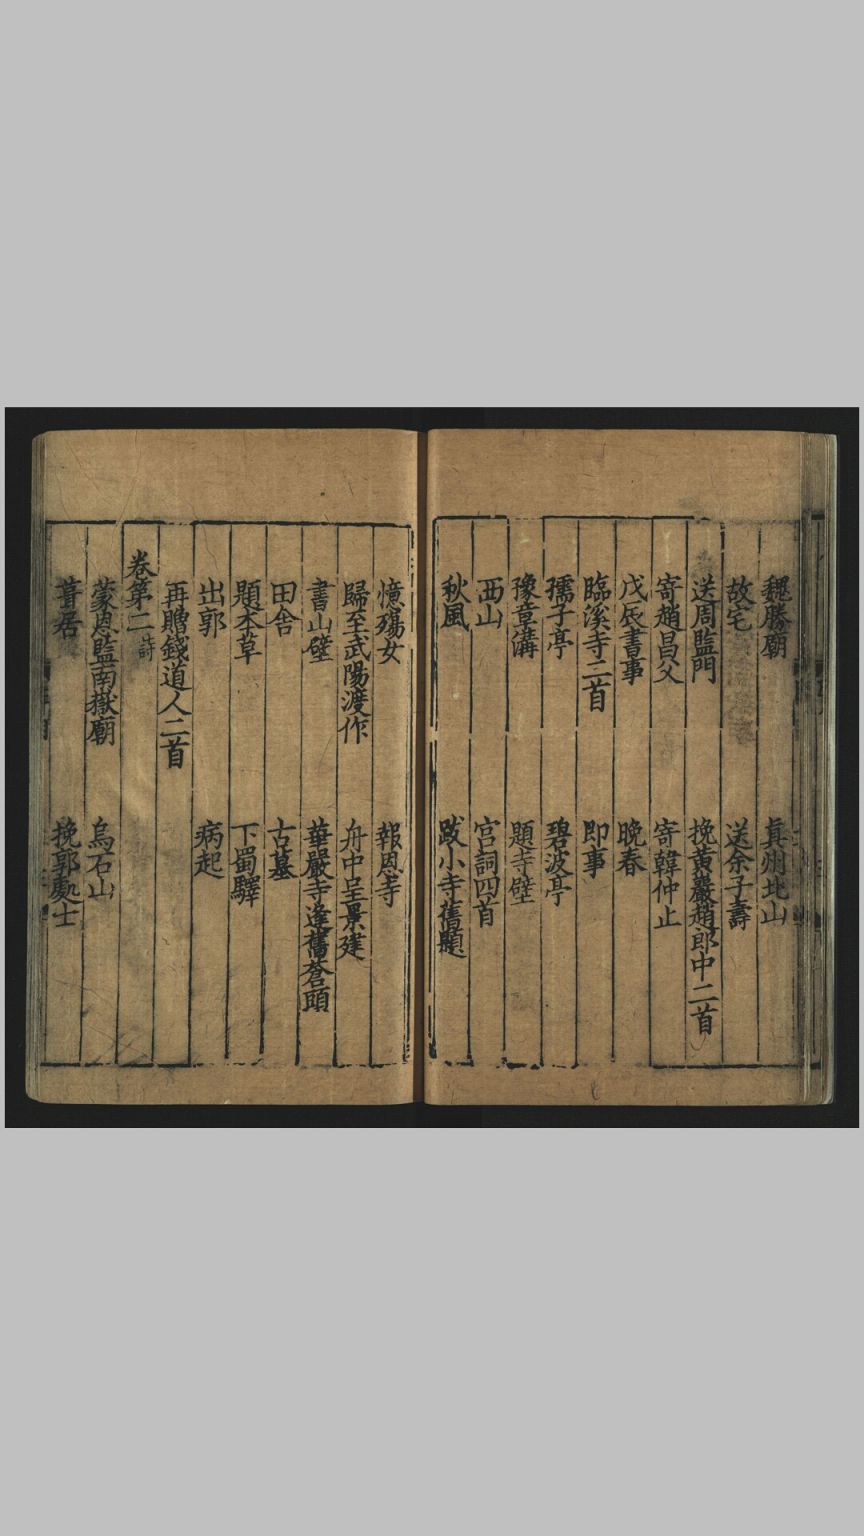 魏勝廟　真州北山
故宅　送余子壽
送周監門　挽黃巖趙郎中二首
寄趙昌父　寄韓仲止
戊辰書事　晚春
臨溪寺二首　即事
孺子亭　碧波亭
豫章溝　題寺壁
西山　宮詞四首
秋風　跋小寺舊題
憶殤女　報恩寺
歸至武陽渡作　舟中呈景建
書山壁　華嚴寺逢舊蒼頭
田舍　古墓
題本草　下蜀驛
出郭　病起
再贈錢道人二首
卷第二 詩
蒙恩監南嶽廟　烏石山
葺居　挽郭處士